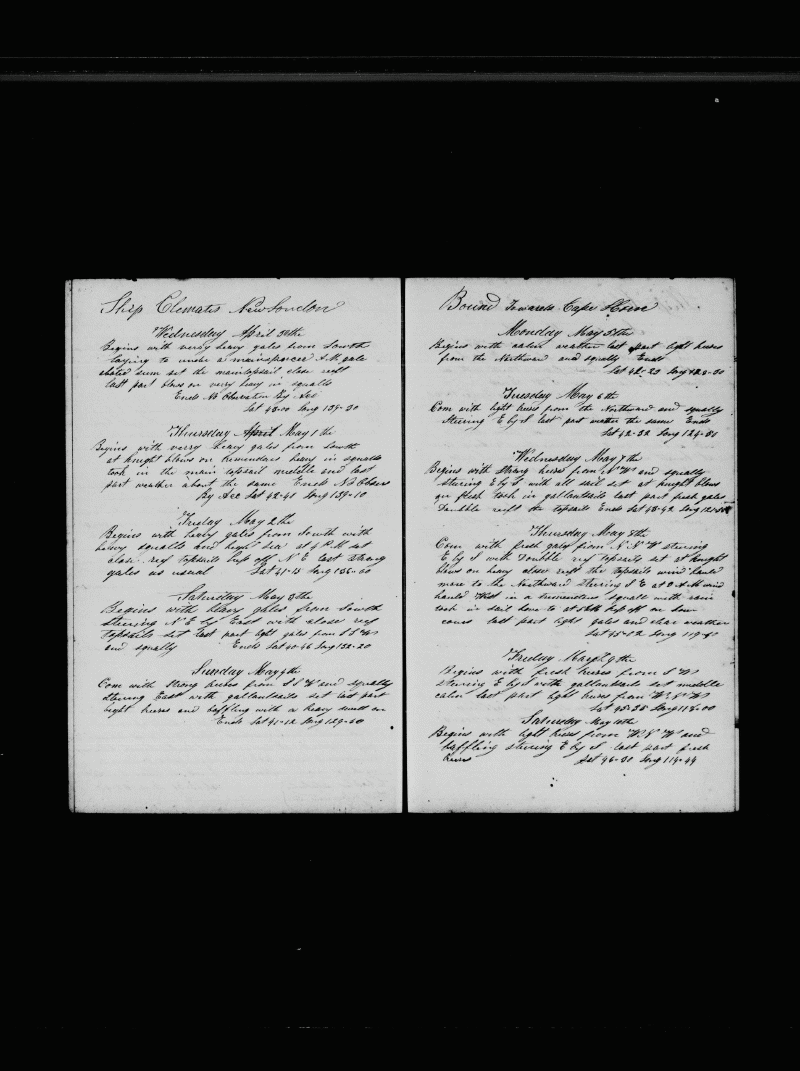 Ship Clematis New London
Wednesday April 30th
Begins with verry heavy gales from South
laying to under a mainspencer A.M. gale
abated sum set the maintopsail close reeft
last part blows on verry heavy in squalls
Ends No Observation By Acc
Lat 43-00 Long 139-30
Thursday April May 1th
Begins with verry heavy gales from South
at knight blows on tremendars heavy in squalls
took in the main topsail meddle and last
part weather about the same Ends No Obser
By Acc Lat 42-41 Long 139-10
Friday May 2th
Begins with heavy gales from South with
heavy squalls and hegh sea at 4 P.M. set
close reef topsails kept off N E last strong
gales as usual Lat 41-15 Long 136-00
Saturday May 3th
Begins with heavy gales from South
steering N E by East with close reef
topsails set last part light gales from S S W
and squally Ends Lat 40-46 Long 132-20
Sunday May 4th
Com with strong brises from S S W and squally
stearing East with gallantsails set last part
light brises and baffling with a heavy swell on
Ends Lat 41-12 Long 129-60
Bound Towards Cape Horne
Monday May 5th
Begins with calm weather last part light brises
from the Northward and squally Ends
Lat 42-23 Long 128-30
Tuesday May 6th
Com with light brises from the Northward and squally
stearing E by S last part weather the same Ends
Lat 42-32 Long 124-51
Wednesday May 7th
Begins with strong brises from N W and squally
steering E by S with all sail set at knight blows
on fresh took in gallantsails last part fresh gales
Doubble reeft the topsails Ends Lat 43-42 Long 121
Thursday May 8th
Com with fresh gales from N N W steering
E by S with Doubble reef topsails set at knight
blows on heavy close reeft the topsails wind hauld
more to the Northward stearing S E at 2 A.M. wind
hauld West in a tremendous squall with rain
took in sail hove to at kept off on
cours last part light gales and clear weather
Lat 45-02 Long 119-40
Friday May 9th
Begins with fresh brises from S W
stearing E by S with gallantsails set meddle
calm last part light brises from W N W
Lat 45-38 Long 118-00
Saturday May 10th
Begins with light brises from W N W and
baffling stearing E by S last part fresh
brises Lat 46-30 Long 114-44